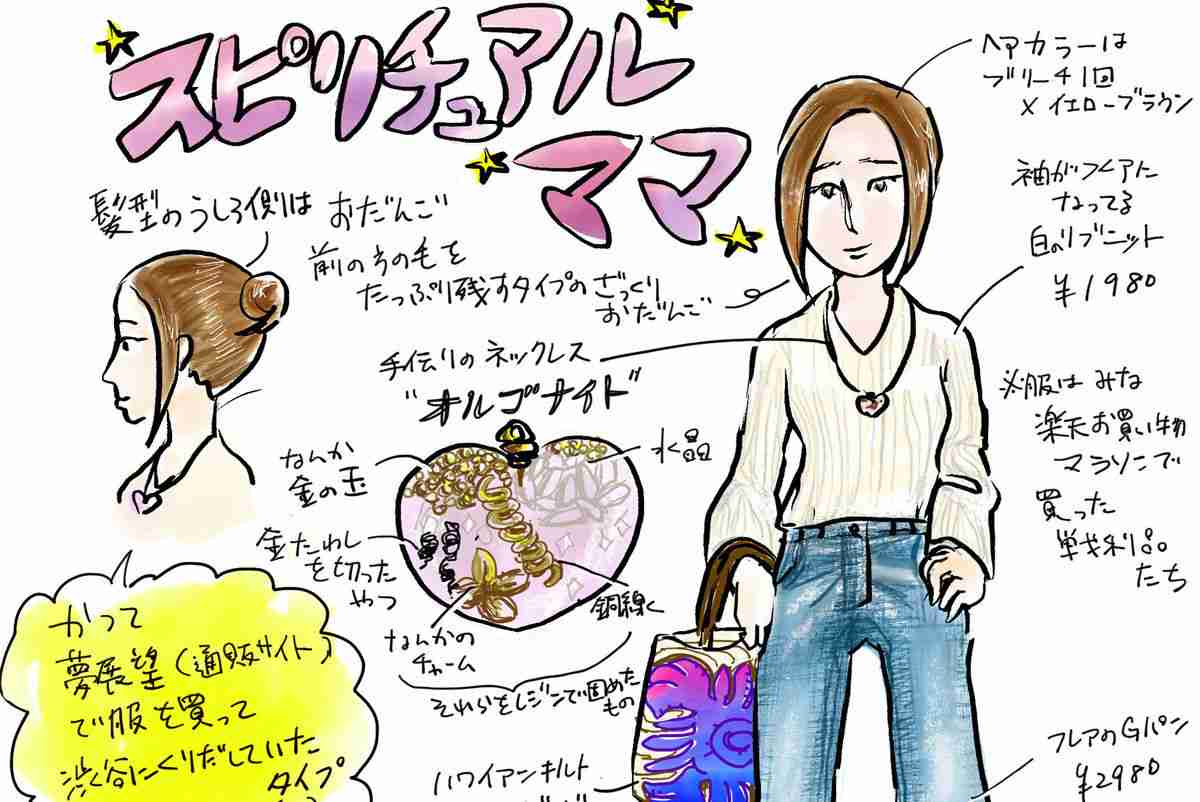 スピリチュアル
ママ
ヘアカラーは
ブリーチ1回
×イエローブラウン
髪型のうしろ側は おだんご
前のうの毛を
たっぷり残すタイプの ざっくり
おだんご
袖がフレアに
なってる
白のリブニット
¥1980
手作りのネックレス
"オルゴナイト"
水晶
なんか
金の玉
金たわし
を切った
やつ
なんかの
チャーム
銅線く
それらをレジンで固めた
もの
※服は みな
楽天お買い物
マラソンで
買った
戦利品
たち
かつて
夢展望(通販サイト)
で服を買って
渋谷にくりだしていた
タイプ
ハワイアンキルト
フレアのGパン
¥2980